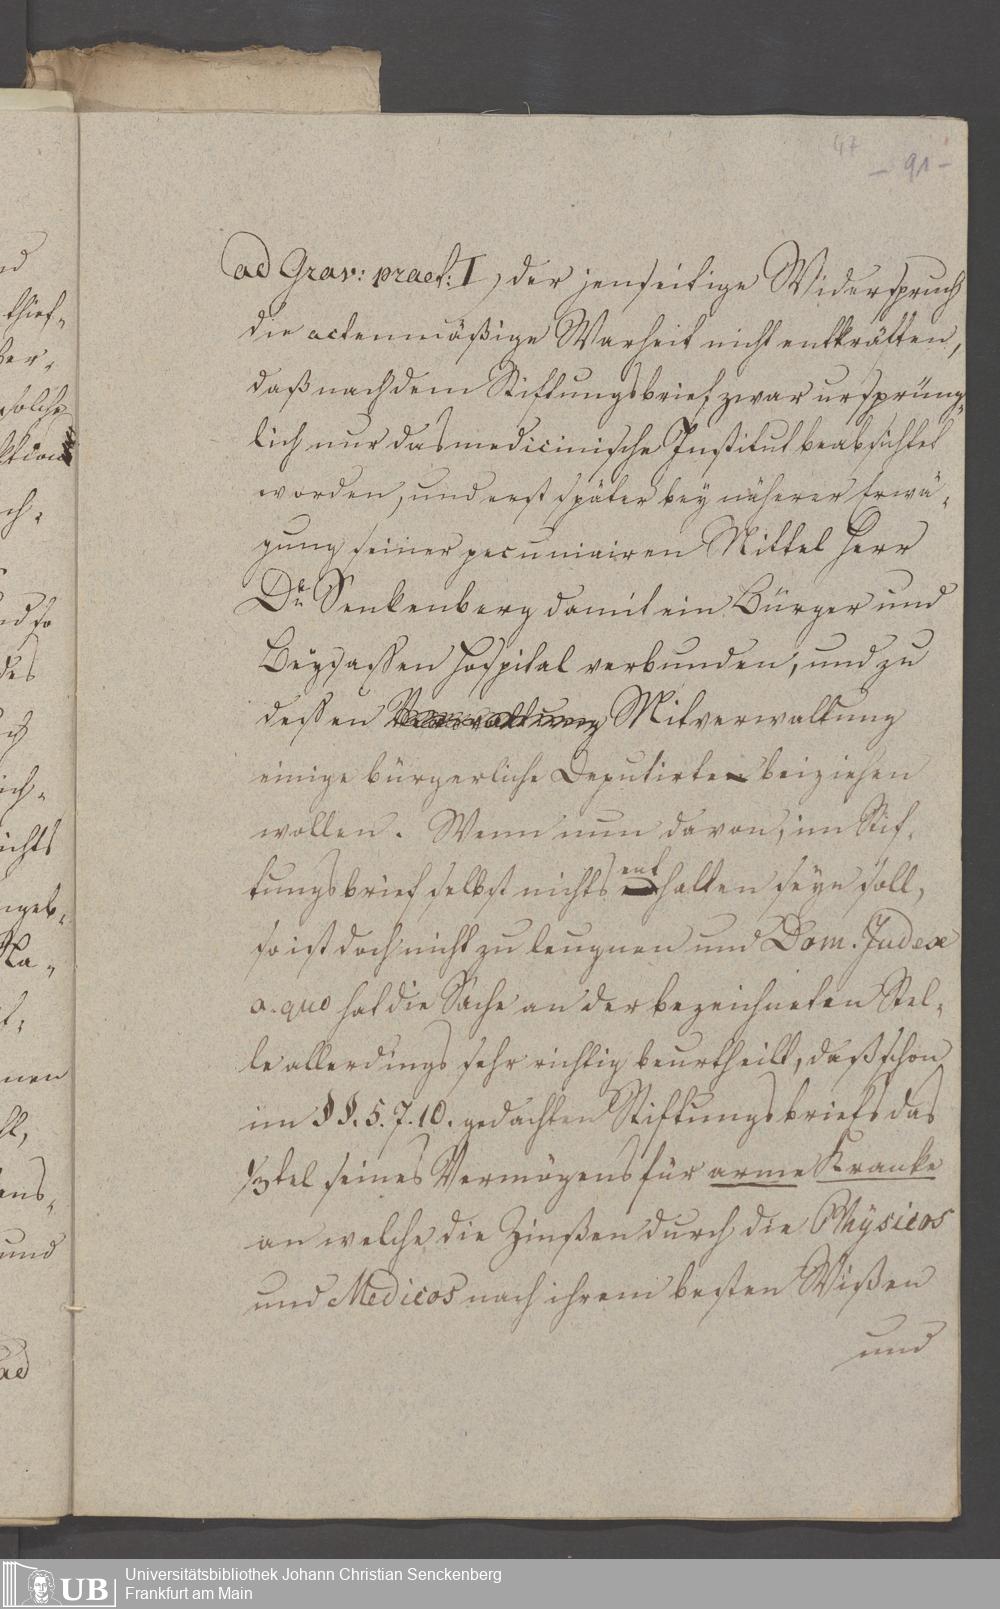 47
- 91 -
ad Grav: praef: I, der jenseitige Widerspruch
die actenmäßige Warheit nicht entkräften,
daß nach dem Stiftungsbrief zwar ursprüng-
lich nur das medicinische Institut beabsichtet
worden, und erst später bey näherer Erwä-
gung seiner pecuniairen Mittel Herr
Dr. Senkenberg damit ein Bürger und
Beysassen Hospital verbunden, und zu
dessen Verwaltung Mitverwaltung
einige bürgerliche Deputirte beiziehen
wollen. Wenn nun davon, im Stif-
tungsbrief selbst nichts enthalten seyn soll,
so ist doch nicht zu leugnen und Dom. Judex
a. quo hat die Sache an der bezeichneten Stel-
le allerdings sehr richtig beurtheilt, daß schon
im §§. 5. 7. 10. gedachten Stiftungsbriefs das
1/3tel seines Vermögens für arme Kranke
an welche die Zinßen durch die Physicos
und Medicos nach ihrem besten Wißen
und
nd
thief-
der-
solche
ch-
nd so
des
ich-
ichts
ngeb-
Ra-
nen
ens-
und
ad
UB
Universitätsbibliothek Johann Christian Senckenberg
Frankfurt am Main